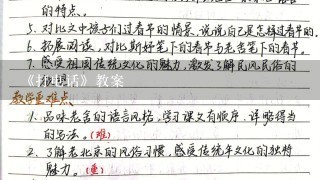 的特点。
5. 对比文中孩子们过春节的情景,说说自己是怎样过春节的。
6. 拓展阅读,对比斯好笔下的春节与老舍笔下的春节。
7. 感受祖国传统文化的魅力,激发了解民风民俗的
《打电话》教案
教学重难点、
1. 品味老舍的语言风格,学习课文有顺序、详略得当
的写法。(难)
2. 了解老北京的风俗习惯,感受传统年文化的独特
魅力。(重)